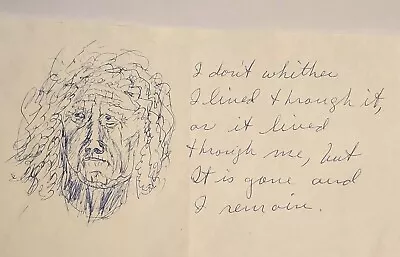 I don't whither
I lived through it,
or it lived
through me, but
It is gone and
I remain.